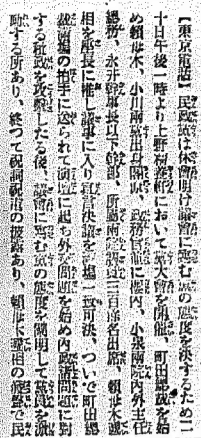 【東京電話】民政黨は休會明け議會に進む黨の態度を決するため二
十日午後一時より上野精養軒において黨大會を開催、町田總裁を始
め賴母木、小川兩黨出身閣僚、政務官側に櫻内、小泉兩院内外主任
總務、永井幹事長以下幹部、所屬兩院議員三百餘名出席、賴母木遞
相を座長に推し議事に入り宣言決議を滿場一致可決、ついで町田總
裁滿場の拍手に送られて演壇に起ち外交問題を始め内政諸問題に對
する秕政を攻擊したる後、議會に進む黨の態度を闡明して黨員を激
勵する所あり、終つて祝詞祝電の披露あり、賴母木遞相の發聲で民